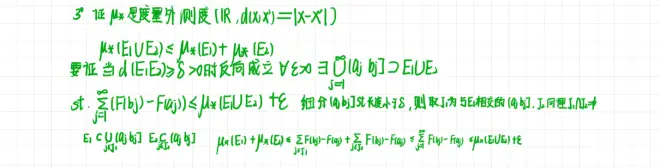 3° 证 μ* 是度量外测度 (ℝ, d(x,x')=|x-x'|)
μ*(E₁∪E₂) ≤ μ*(E₁) + μ*(E₂)
要证 当 d(E₁E₂) ≥ δ >0时反向成立 ∀ε>0 ∃ ⋃_{j=1}^{∞}(aj bj] ⊃ E₁∪E₂
st. ∑_{j=1}^{∞}(F(bj)-F(aj)) ≤ μ*(E₁∪E₂) +ε 细分(aj bj]只长度小于δ, 则取J₁为与E₁相交的(aj bj], J₂同理 J₁∩J₂=∅
E₁ ⊂ ⋃_{j∈J₁}(aj bj] E₂ ⊂ ⋃_{j∈J₂}(aj bj] μ*(E₁)+μ*(E₂) ≤ ∑_{j∈J₁} F(bj)-F(aj) + ∑_{j∈J₂} F(bj)-F(aj) ≤ ∑_{j=1}^{∞} F(bj)-F(aj) ≤ μ*(E₁∪E₂)+ε